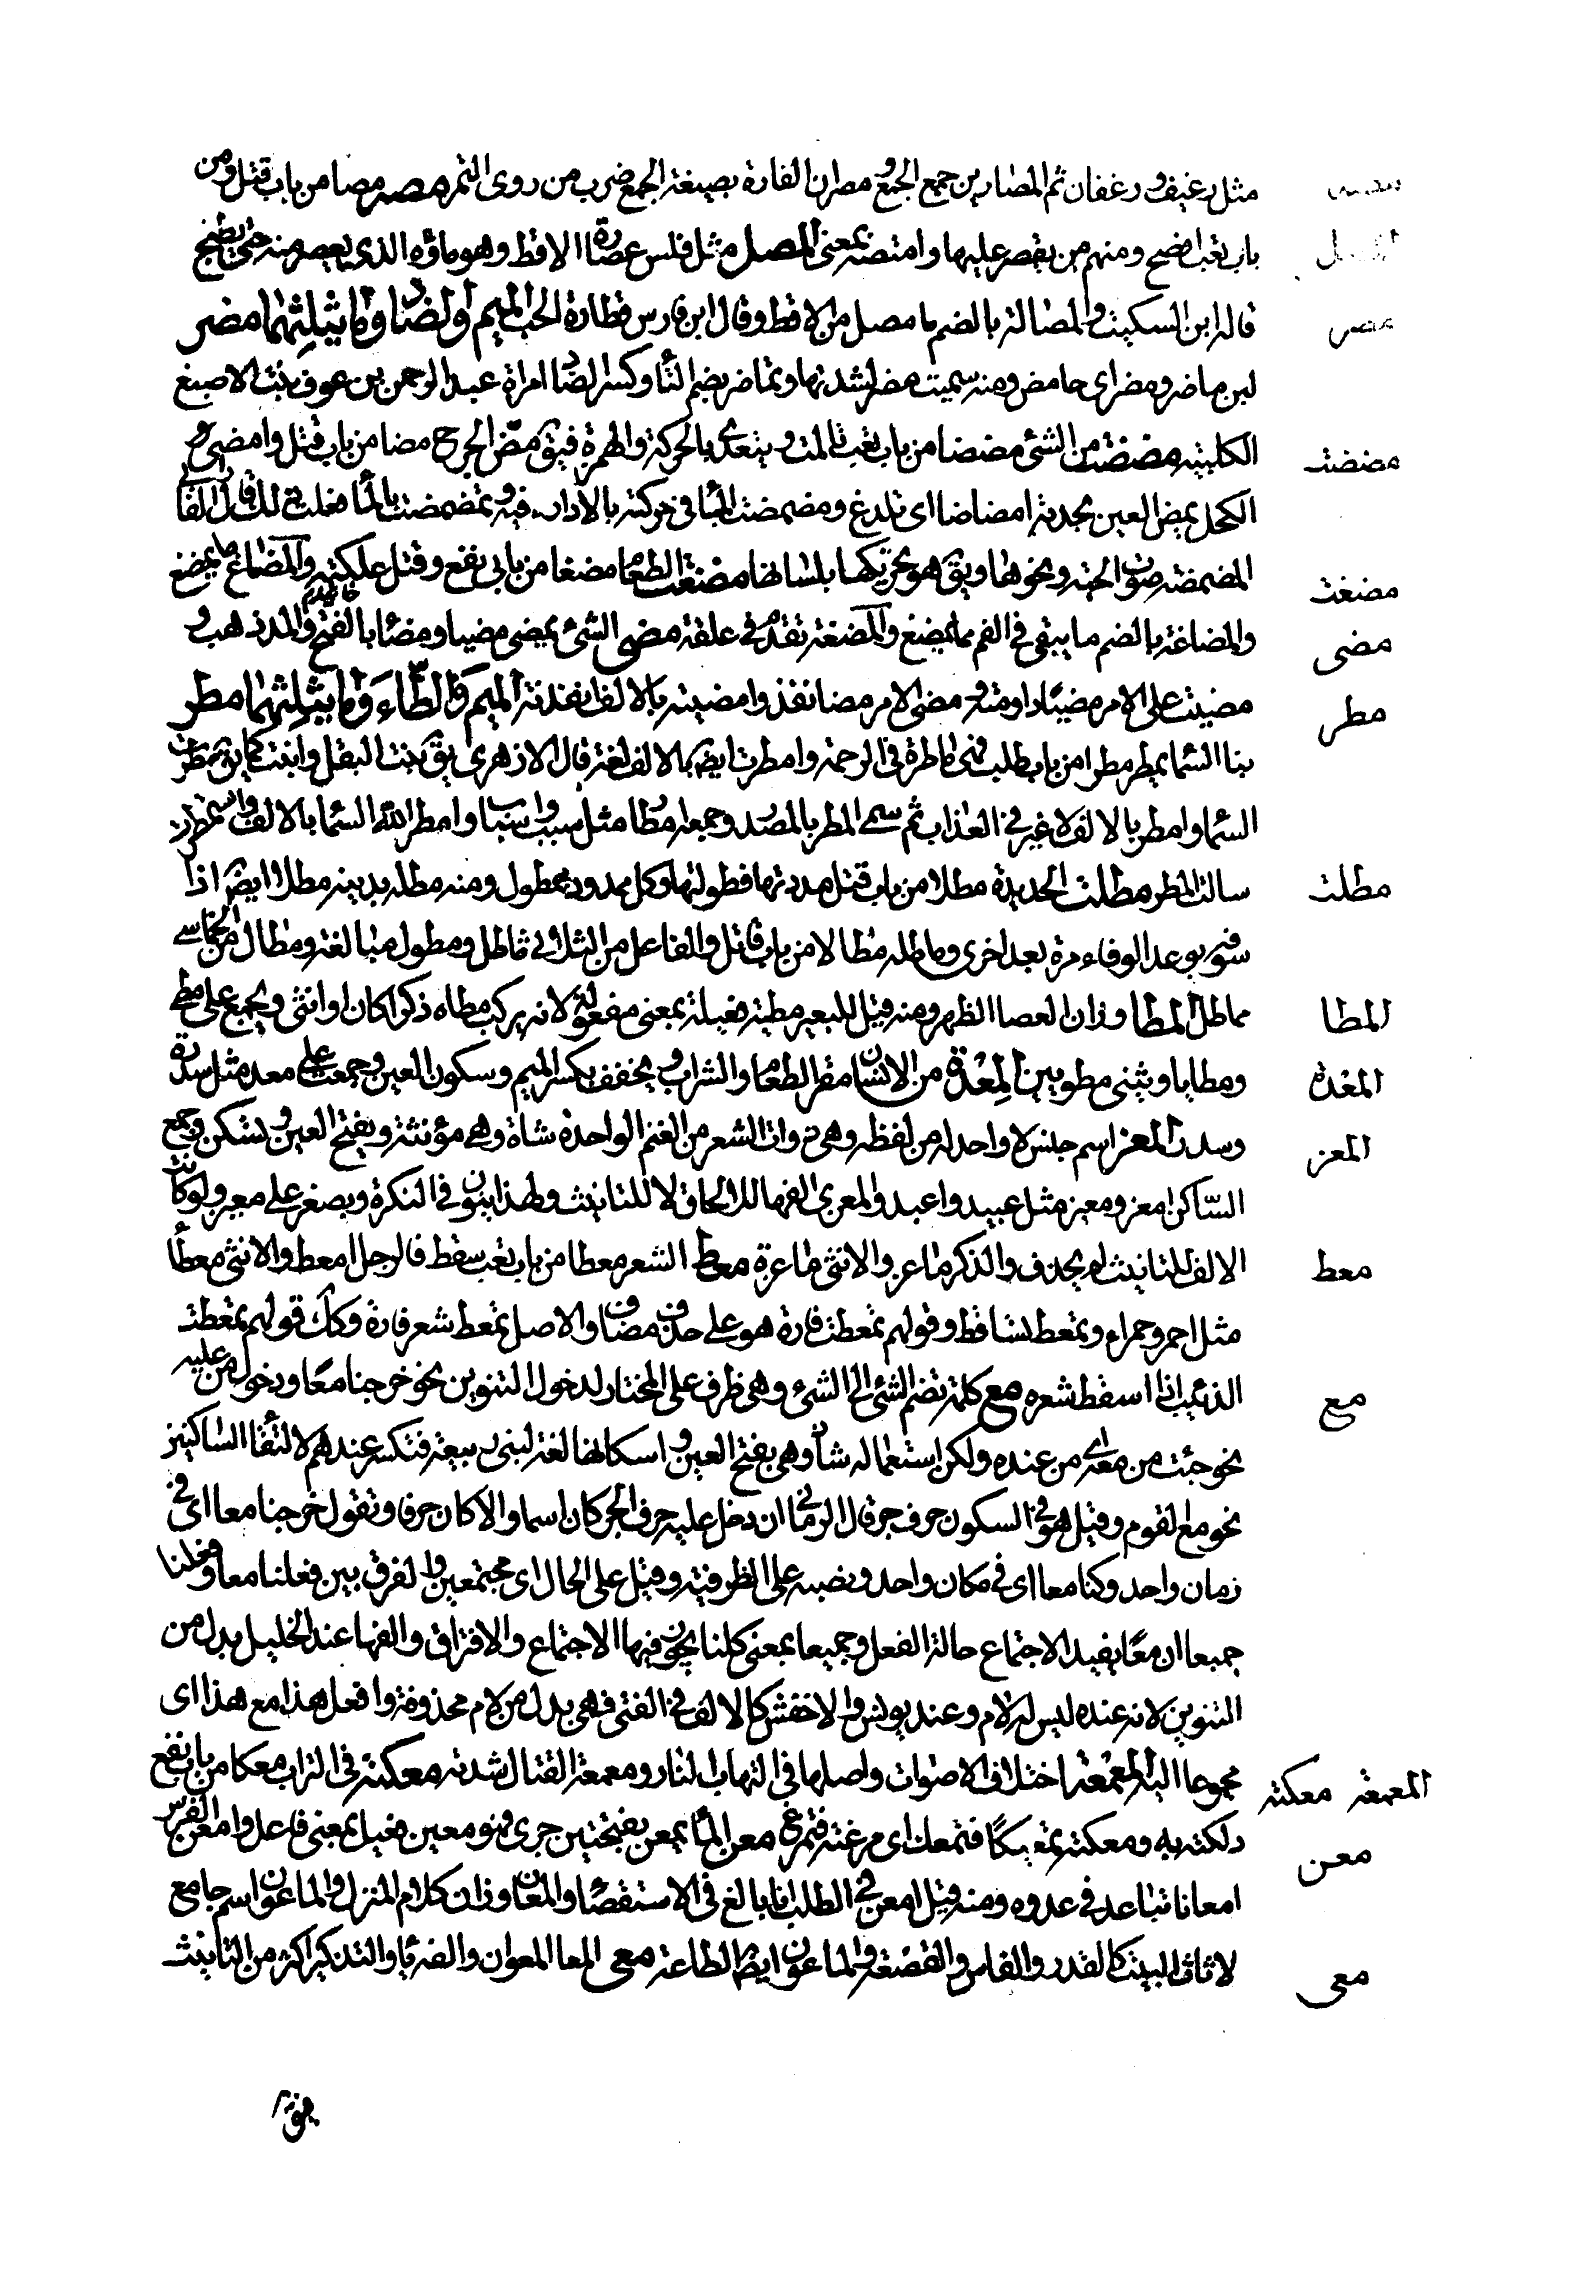 مثل رغيف ورغفان ثم المصارين جمع الجمع و مصران الفارة بصيغة الجمع ضرب من روى التمر مصه مصا من باب قتل ومن
باب تعب افصح ومنهم من يقتصر عليها وامتصه بمعنى المصل مثل فلس عصارة الاقط وهو ماؤه الذي يعصر منه حتى يطبخ
قاله ابن السكيت والمصالة بالضم ما مصل من الاقط وقال ابن فارس قطارة الحب الميم والضاد وما يثلثهما مضر
لبن ماضر ومضر اى حامض ومنه سميت مضر لشدتها وتماضر بضم التا وكسر الضاد امراة عبد الرحمن بن عوف بنت الاصبغ
الكلبيه مضضت من الشئ مضضا من باب تعب تالمت و يتعدى بالحركة والهمزة فيق مض الجرح مضا من باب قتل وامضى و
الكحل يمض العين بحدته امضاضا اى تلدغ ومضمضت الما فى حركته بالادارة فيه و تمضمضت بالما فعلت ذلك قال الفارابى
المضمضة صوت الحية ونحوها ويق هو تحريكها بلسانها مضغت الطعام مضغا من بابى نفع وقتل علكته والمضاغ ما يمضغ
والمضاغة بالضم ما يبقى فى الفم مما يمضغ والمضغة تقدم فى علقة مضى الشئ يمضى مضيا ومضا بالفتح والمد ذهب و
مضيت على الامر مضيا داومته و مضى الامر مضا نفذ وامضيته بالالف انفذته الميم والطاء وما يثلثهما مطر
بنا السما يمطر مطرا من باب طلب فهى ماطرة فى الرحمة وامطرت ايض بالالف لغة قال الازهرى يق نبت البقل وانبت كما يق مطرت
السما وامطر بالالف لا غير فى العذاب ثم سمى المطر بالمصدر وجمعه امطار مثل سبب واسباب وامطر الله السما بالالف واستمطرت
سالت المطر مطلت الحديدة مطلا من باب قتل مددتها فطولتها وكل ممدود ممطول ومنه مطله بدينه مطلا ايض اذا
سوفه بوعد الوفاء مرة بعد اخرى وماطله مطالا من باب قاتل والفاعل من الثلاثى ماطل ومطول مبالغة ومطال من الخماسى
مماطل المطا وزان العصا الظهر ومنه قيل للبعير مطية فعيلة بمعنى مفعولة لانه يركب مطاه ذكرا كان او انثى ويجمع على مطى
ومطايا ويثنى مطوين المعدة من الانسان مقر الطعام والشراب و يخفف بكسر الميم وسكون العين وجمعت على معد مثل سدرة
وسدر المعز اسم جنس لا واحد له من لفظه وهى ذوات الشعر من الغنم الواحدة شاة وهى مؤنثة و بفتح العين و تسكن وجمع
الساكن امعز ومعيز مثل عبيد واعبد والمعزى الفها للالحاق لا للتانيث ولهذا ينون فى النكرة ويصغر على معيز ولو كانت
الالف للتانيث لم يحذف والذكر ماعز والانثى ماعزة معط الشعر معطا من باب تعب سقط فالرجل امعط والانثى معطا
مثل احمر وحمراء وتمعط تساقط وقولهم تمعطت فارة هو على حذف مضاف والاصل تمعط شعر فارة وكك قولهم تمعطت
الذئب اذا اسقط شعره مع كلمة تضم الشئ الى الشئ وهى ظرف على المختار لدخول التنوين نحو خرجنا معا ودخول من عليه
نحو جئت من معه اى من عنده ولكن استعماله شاذ وهى بفتح العين و اسكانها لغة لبنى ربيعة فتكسر عندهم لالتقا الساكنين
نحو مع القوم وقيل هو فى السكون حرف جر قال الرمانى ان دخل عليه حرف الجر كان اسما والا كان حرفا وتقول خرجنا معا اى فى
زمان واحد وكنا معا اى فى مكان واحد ونصبه على الظرفية وقيل على الحال اى مجتمعين والفرق بين فعلنا معا وفعلنا
جميعا ان معا يفيد الاجتماع حالة الفعل وجميعا بمعنى كلنا يجوز فيها الاجتماع والافتراق والفها عند الخليل بدل من
التنوين لانه عنده ليس له لام وعند يونس والاخفش كالالف فى الفتى فهى بدل من لام محذوفة وافعل هذا مع هذا اى
مجموعا اليه المعمعة اختلاف الاصوات واصلها فى التهاب النار ومعمعة القتال شدته معكته فى التراب معكا من باب نفع
دلكته به ومعكته تمعيكا فتمعك اى مرغته فتمرغ معن الما يمعن بفتحتين جرى فهو معين فعيل بمعنى فاعل وامعن الفرس
امعانا تباعد فى عدوه ومنه قيل امعن فى الطلب اذا بالغ فى الاستقصا والمعان وزان كلام المنزل والماعون اسم جامع
لاثاث البيت كالقدر والفاس والقصعة والماعون ايض الطاعة معى المعا المعوان والفه يا والتذكير اكثر من التانيث
مصر
مضضت
مضغت
مضى
مطر
مطلت
المطا
المعدة
المعز
معط
مع
المعمعة معكته
معن
معى